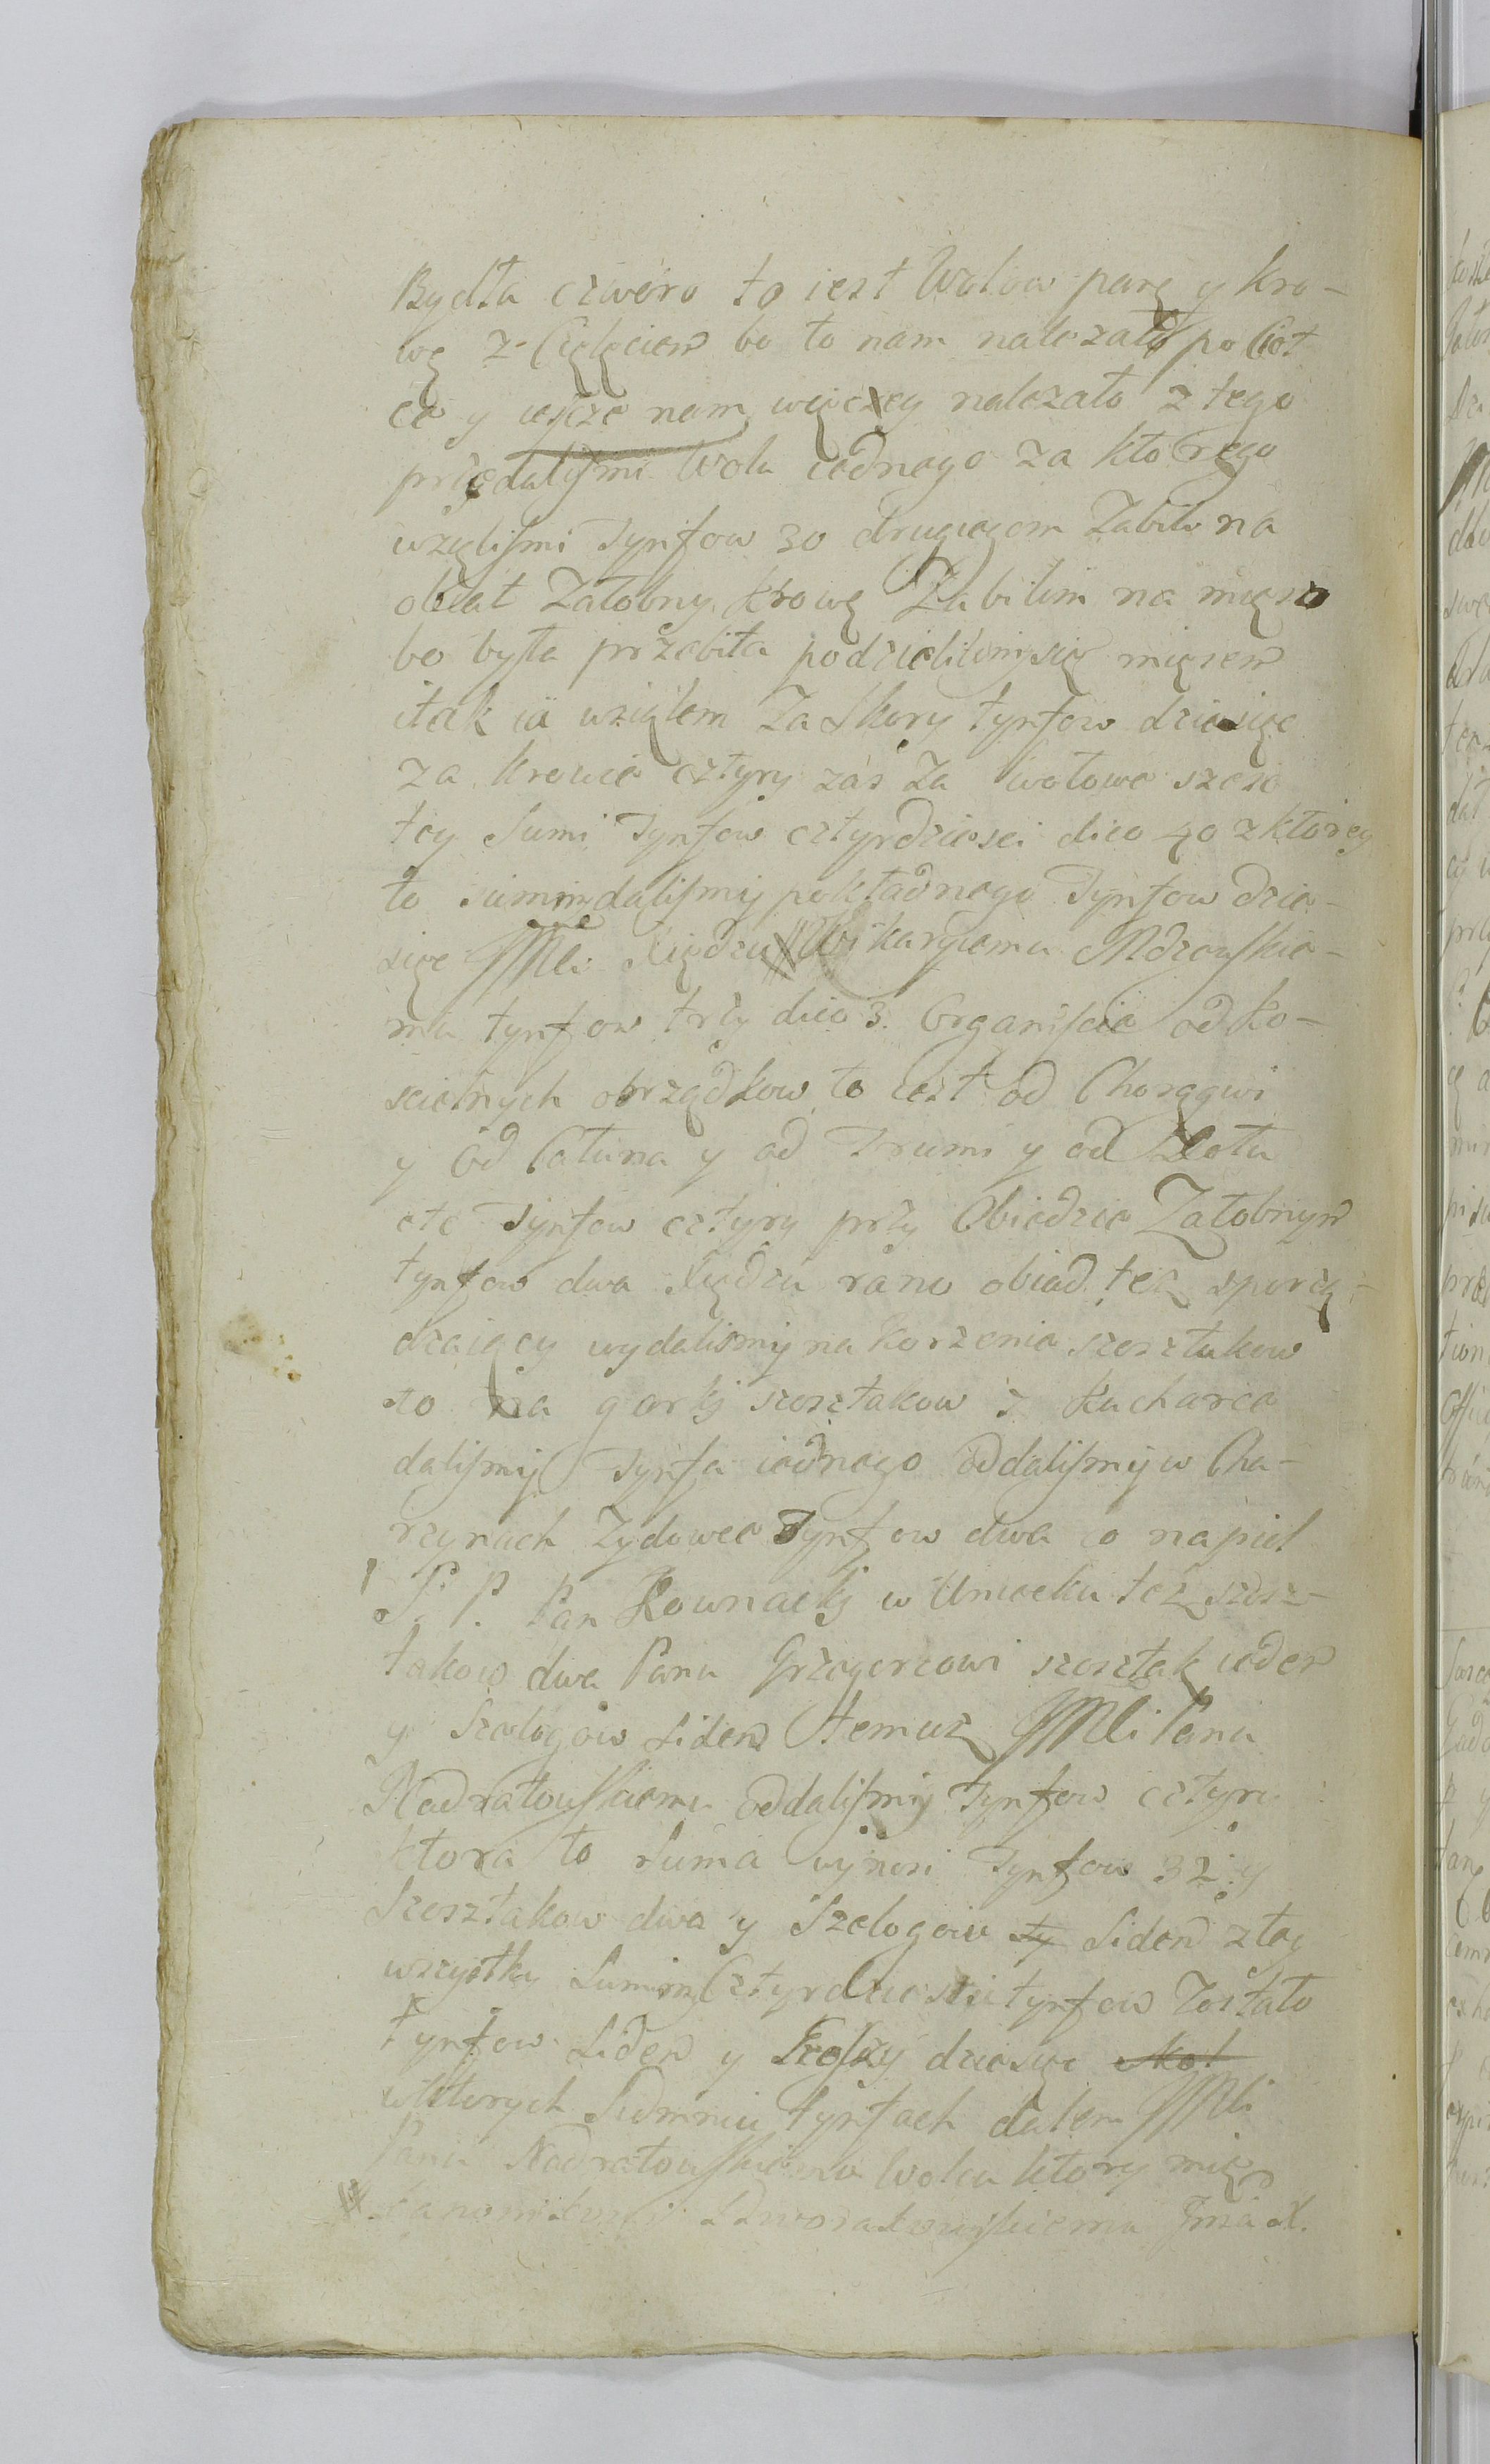 Bydła czworo to iest Wołow parę y kro-
wę z Cięlęciem bo to nam nalezało po Ciot
ce y ieszcze nam więcey nalezało z tego
przedalismi Wołu iednego za ktorego
wzięlismi Tynfow 30 drugiegom Zabił na
obiat Załobny. krowę Zabilim na mięso
bo była przebita podzielilismy się mięsem
itak ia wziąłem Za Skory tynfow dziesięc
za krowie cztyry zas Za wołowe szesc
tey Sumi Tynfow cztyrdziesci dico 40 z ktorey
to summy dalismy pokładnego Tynfow dzie-
sięc JMCi Xiędzu Wikaryiemu Mdzewskie-
mu tynfow trzy dico 3. Organiscie od ko-
scielnych obrządkow to iest od Chorągwi
y od Całuna y od Trumi y od Złota
etc Tynfow cztyry przy Obiedzie Załobnym
tynfow dwa Xiędzu rano obiad ten sporzą-
dzaięcy wydalismy na korzenie szosztakow
10 na garky szosztakow 3 kucharce
dalismy Tynfa iednego oddalismy w Cha-
rzynach Zydowce Tynfow dwa co napieł
S. P. Pan Kownacky w Umocku tez szosz-
takow dwa Panu Grzegorzowi szosztak ieden
y Szelogow Siden temuz JMCi Panu
Nadratowskiemu oddalismy Tynfow cztyry
ktora to Suma wynosi Tynfow 32 y
Szosztakow dwa y Szelogow Sidem z tey
wszystky Summy Cztyrdziestu tynfow Zostało
tynfow Sidem y Groszy dziesięc
w ktorych Sidmniu Tynfach dałem JMCi
Panu Nadratowskiemu Wołu ktory
Dworakowskiemu